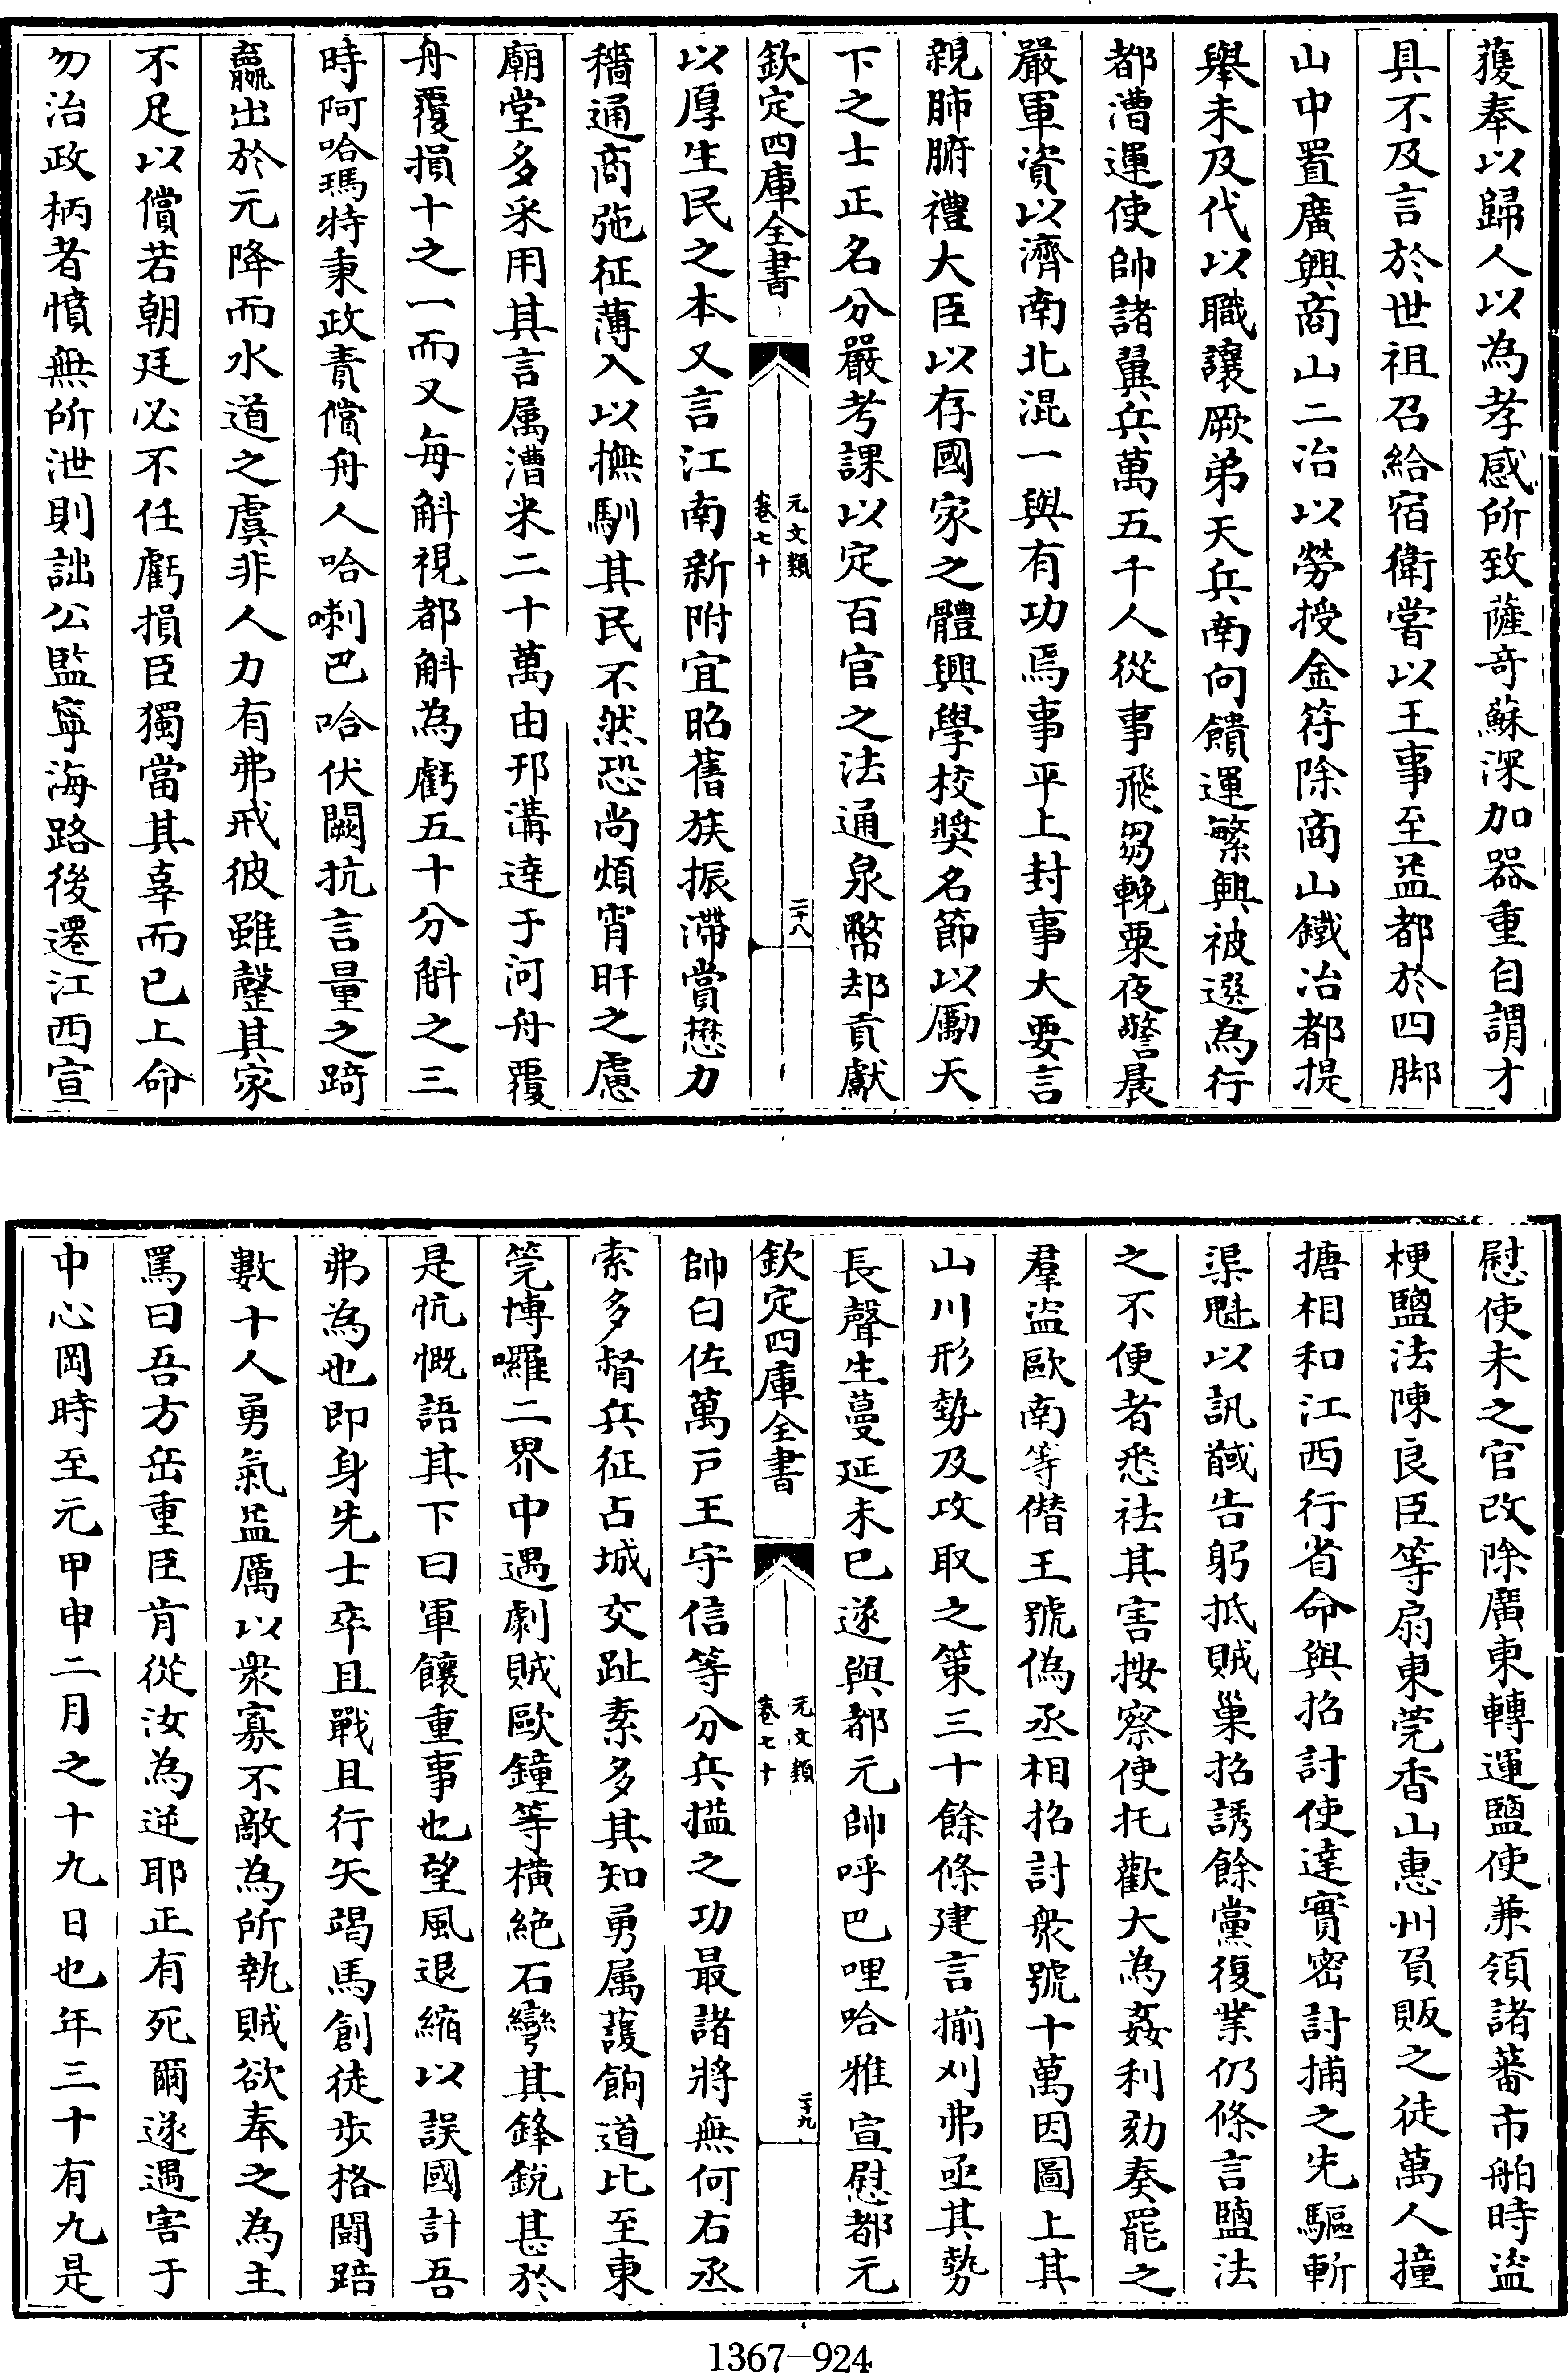 獲奉以歸人以為孝感所致薩竒蘇深加器重自謂才
具不及言於世祖召給宿衛嘗以王事至益都於四脚
山中置廣興商山二冶以勞授金符除商山鐵冶都提
舉未及代以職讓厥弟天兵南向饋運繁興被選為行
都漕運使帥諸翼兵萬五千人從事飛芻輓粟夜警晨
嚴軍資以濟南北混一與有功焉事平上封事大要言
親肺腑禮大臣以存國家之體興學校奬名節以勵天
下之士正名分嚴考課以定百官之法通泉幣却貢獻
欽定四庫全書
元文類
卷七十
二十八
以厚生民之本又言江南新附宜昭舊族振滯賞懋力
穡通商弛征薄入以撫馴其民不然恐尚煩宵旰之慮
廟堂多采用其言属漕米二十萬由邗溝達于河舟覆
舟覆損十之一而又每斛視都斛為虧五十分斛之三
時阿哈瑪特秉政責償舟人哈喇巴哈伏闕抗言量之踦
羸出於元降而水道之虞非人力有弗戒彼雖罄其家
不足以償若朝廷必不任虧損臣獨當其辜而已上命
勿治政柄者憤無所泄則詘公監寧海路後遷江西宣
慰使未之官改除廣東轉運鹽使兼領諸蕃市舶時盜
梗鹽法陳良臣等扇東莞香山惠州負販之徒萬人撞
搪相和江西行省命與招討使達實密討捕之先驅斬
渠魁以訊馘告躬抵賊巢招誘餘黨復業仍條言鹽法
之不便者悉祛其害按察使托歡大為姦利劾奏罷之
羣盜歐南等僣王號偽丞相招討衆號十萬因圖上其
山川形勢及攻取之策三十餘條建言揃刈弗亟其勢
長聲生蔓延未已遂與都元帥呼巴哩哈雅宣慰都元
欽定四庫全書
元文類
卷七十
二十九
帥白佐萬戸王守信等分兵搤之功最諸將無何右丞
索多督兵征占城交趾素多其知勇属護餉道比至東
莞博囉二界中遇劇賊歐鐘等横絶石彎其鋒銳甚於
是忼慨語其下曰軍饟重事也望風退縮以誤國計吾
弗為也即身先士卒且戰且行矢竭馬創徒步格鬭踣
數十人勇氣益厲以衆寡不敵為所執賊欲奉之為主
罵曰吾方岳重臣肯從汝為逆耶正有死爾遂遇害于
中心岡時至元甲申二月之十九日也年三十有九是
1367—924